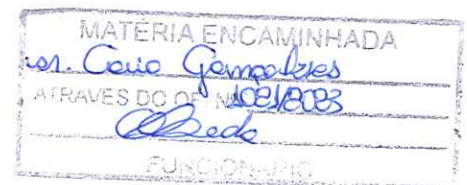 MATÉRIA ENCAMINHADA
sr. Caio Gonçalves
ATRAVÉS DO OF. Nº 1021/2023
FUNCIONÁRIO